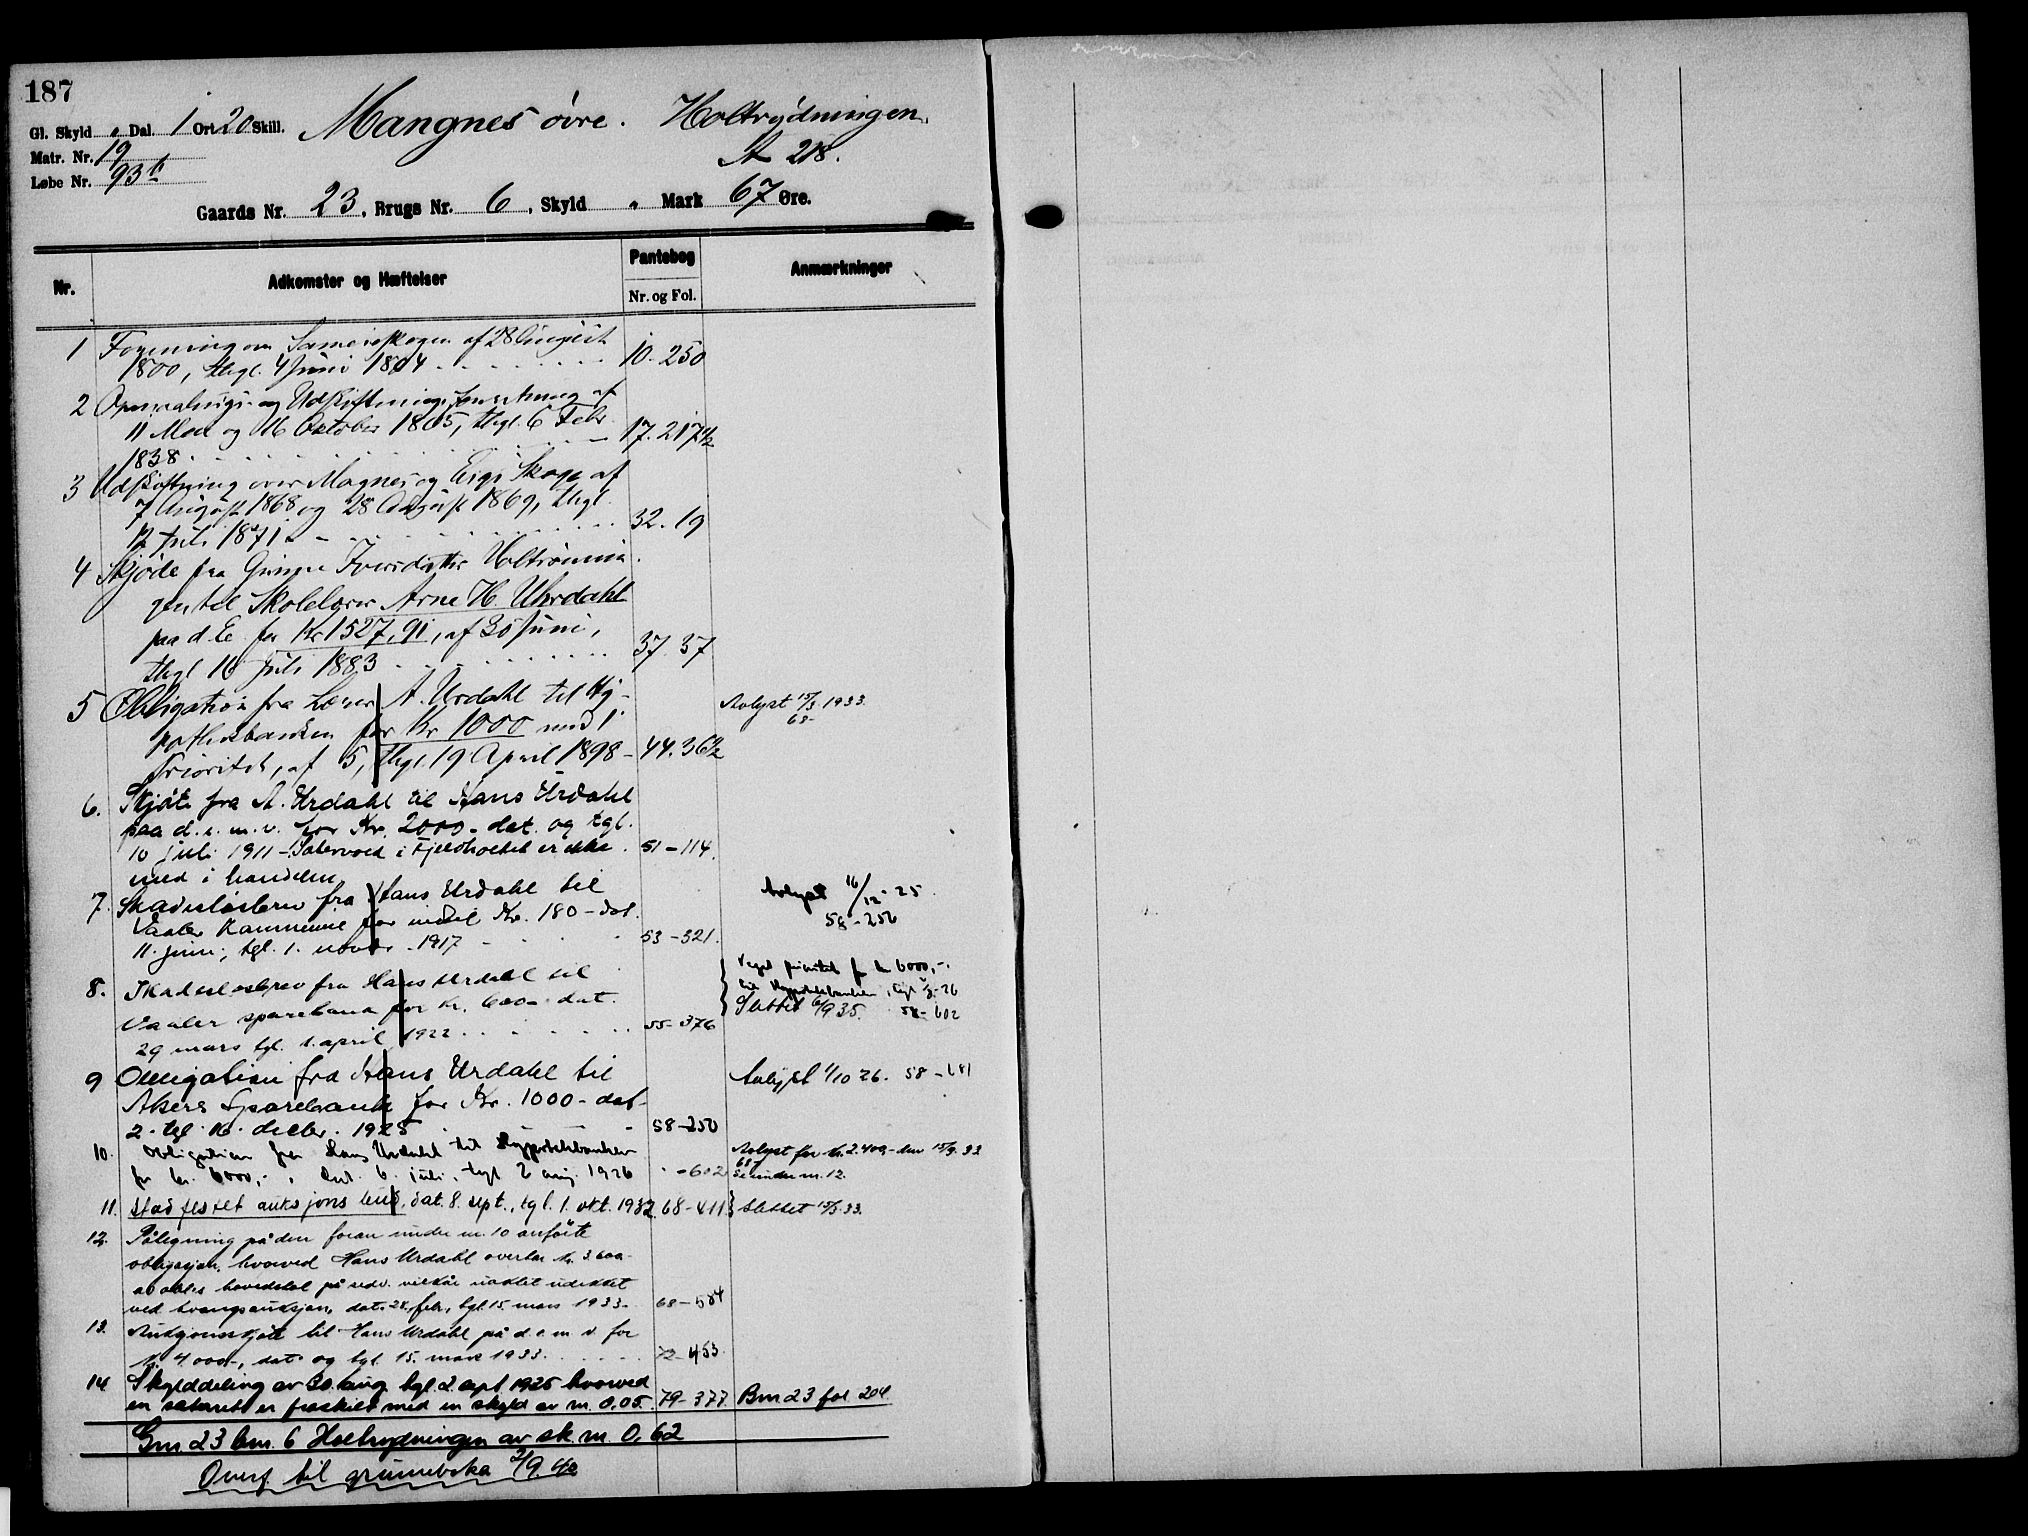 187
Gl. Skyld „ Dal. 1 Ort 20 Skill. Mangnes övre. Holtrydningen.
Matr. Nr. 19 A 218.
Løbe Nr. 93 b
Gaards Nr. 23, Brugs Nr. 6, Skyld „ Mark 67 Øre.
Nr. Adkomster og Hæftelser Pantebog Nr. og Fol. Anmærkninger
1 Forening om Sameieskogen af 28 August
1800, thgl. 4 Juni 1804 10-250
2 og Udskiftningsforretning af
11 Mai og 16 Oktober 1805, thgl. 6 Febr
1838 17. 217 1/2
3 Udskiftning over Magnes og Eigs Skoge af
7 August 1868 og 28 August 1869, thgl.
12 Juli 1871 32. 19
4 Skjøde fra Gunne Iversdatter Holtrønnin
gen til Skolelærer Arne H. Uhrdahl
paa d. E. for Kr 1527,91, af 30 Juni,
thgl 16 Juli 1883 37. 37
5 Obligation fra Lærer A. Urdahl til Hy-
pothekbanken for Kr 1000 med 1
Prioritet, af 5, thgl. 19 April 1898 - 44. 36 1/2 Avlyst 15/3 1933.
68-
6. Skjøte fra A. Urdahl til Hans Urdahl
paa d. e. m. v. for Kr. 2000 - dat. og tgl.
10 juli 1911 - Sætervold i Fjeldholtet er ikke 51-114.
med i handelen
7. Skadesløsbrev fra Hans Urdahl til Avlyst 16/12-25
Vaaler Kommune for indtil Kr. 180 - dat. 58-250
11. juni, tgl. 1. novbr. 1917 53-321.
8. Skadesløsbrev fra Hans Urdahl til Veget prioritet for kr 6000,-
Vaaler sparebank for kr. 600 - dat. til Hypotekbanken, tgl 2/8-26
29 mars tgl. 1. april 1922 55-376 Slettet 6/9 35. 58-602
9 Obligation fra Hans Urdahl til Avlyst 1/10 26. 58-681
Akers Sparebank for Kr. 1000 - dat
2. tgl. 16. decbr. 1925 58-250
10. Obligation fra Hans Urdahl til Hypotekbanken Avlyst for kr. 2.400,- den 15/3. 33
for kr. 6000,-, dat. 6. juli, tgl 2 aug. 1926 " -602 68- Se under nr. 12.
11. Stadfestet auksjonsbud, dat. 8. sept., tgl. 1. okt. 1932. 68-411 } Slettet 15/3. 33.
12. Påtegning på den foran under nr. 10 anførte
obligasjon, hvorved Hans Urdahl overtar kr. 3600-
av obl.s hovedstol på vedv. vilkår uavset udekket
ved tvangsauksjon, dat. 28. febr., tgl. 15. mars 1933. 68-584
13. Auksjonsskjøte til Hans Urdahl på d. e. m. v. for
kr. 4.000,-, dat. og tgl. 15. mars 1933. 72-453
14 Skylddeling av 30. aug. tgl. 2. sept 1935 hvorved
en seterett er fraskilt med en skyld av m. 0,05. 79-377 Bnr 23 fol 204.
Gnr 23 bnr. 6 Holtrydningen av sk. m. 0,62
Overf. til grunnboka 2/9. 40